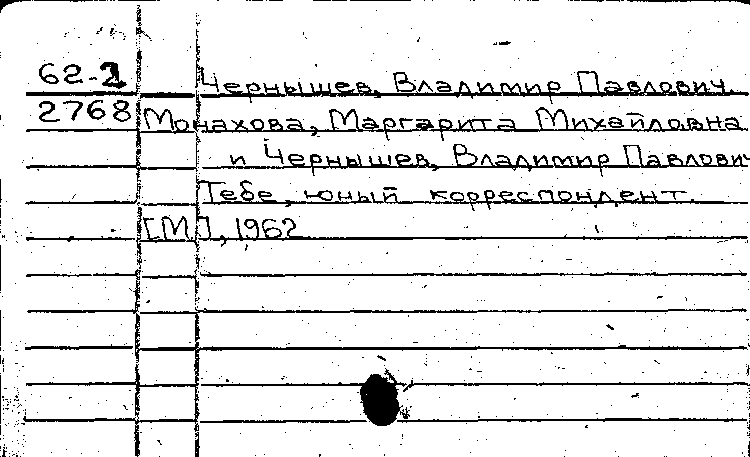 62-2 Чернышев, Владимир Павлович
2768 Монахова, Маргарита Михайловна
и Чернышев, Владимир Павлович
Тебе, юный корреспондент.
[М.], 1962